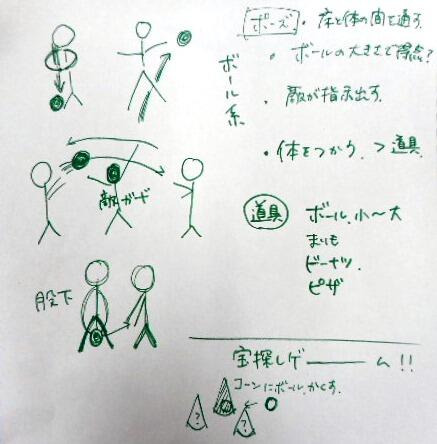 ポーズ
・床と体の間を通す
ボール系
・ボールの大きさで得点?
・敵が指示出す
・体をつかう. > 道具
敵ガード
道具
ボール.小〜大
まりも
ドーナツ.
ピザ
股下
宝探しゲーーーム!!
コーンにボールかくす.
?
?